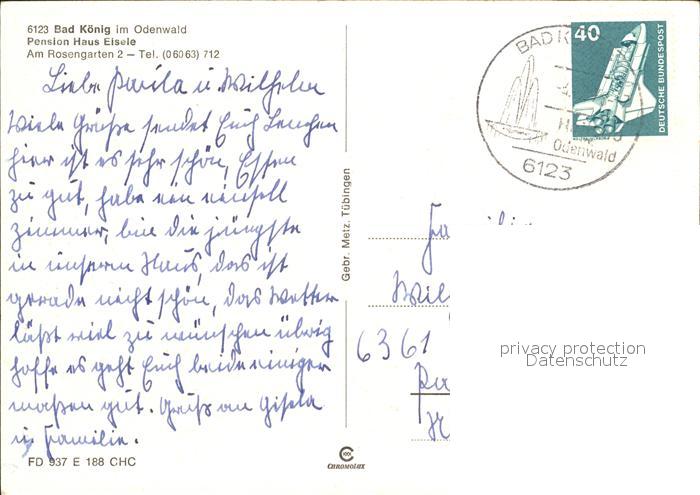 6123 Bad König im Odenwald
Pension Haus Eisele
Am Rosengarten 2 – Tel. (06063) 712
Liebe Paula u. Wilhelm
Viele Grüße sendet Euch Lenchen
hier ist es sehr schön, Essen
zu gut, habe ein
Zimmer, bin die jüngste
in unserm Haus, das ist
gerade nicht schön, das Wetter
läßt viel zu wünschen übrig
hoffe es geht Euch beide einiger
maßen gut. Gruß an Gisela
u. Familie.
FD 937 E 188 CHC
Gebr. Metz, Tübingen
CHROMOLUX
BAD K
Odenwald
6123
40
DEUTSCHE BUNDESPOST
Fa
Wil
6361
privacy protection
Datenschutz